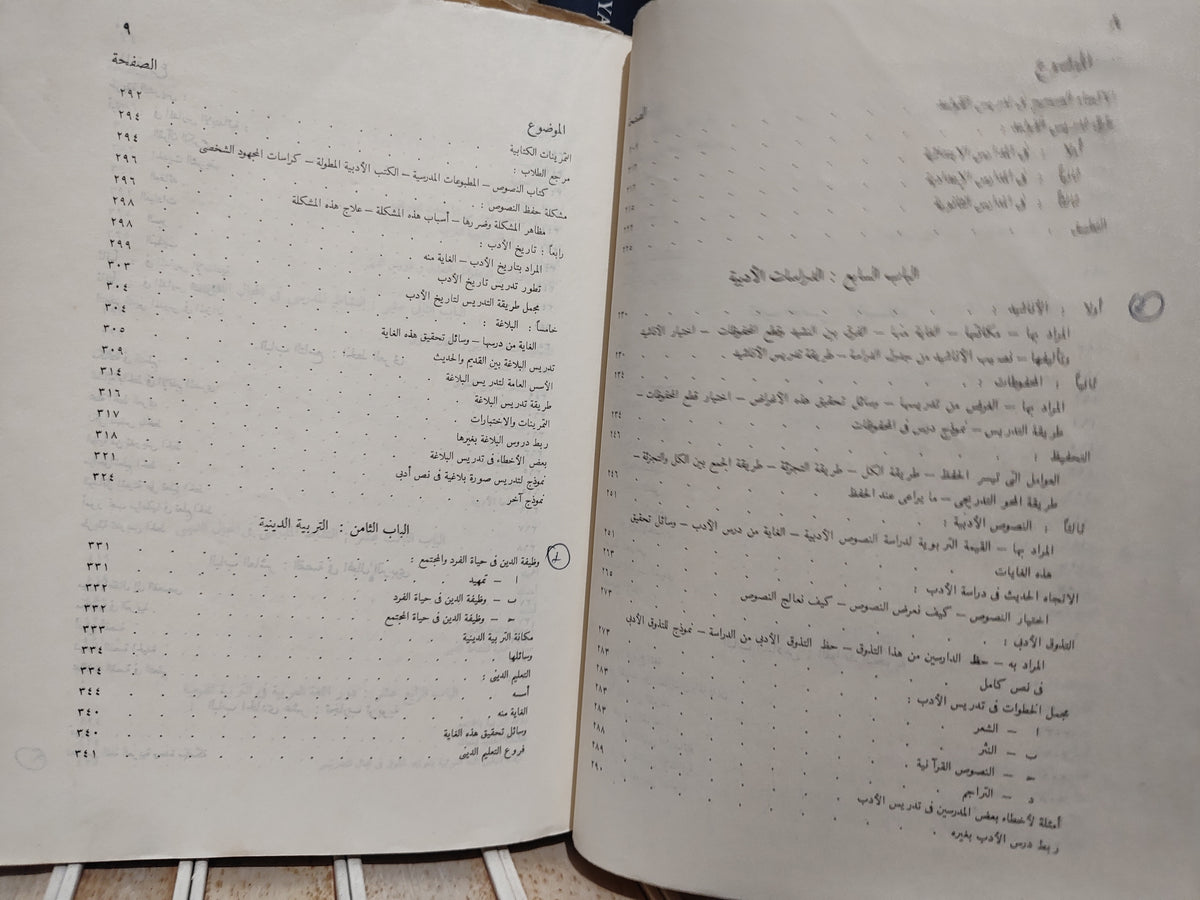 الموضوع
الصفحة
الاتجاه الصحيح فى تدريس القواعد
طرق تدريس القواعد :
أولا : فى المدارس الابتدائية
ثانياً : فى المدارس الإعدادية
ثالثاً : فى المدارس الثانوية
التطبيق ٢٢٥
الباب السابع : الدراسات الأدبية
أولا : الأناشيد : ٢٣٠
المراد بها – مكانتها – الغاية منها – الفرق بين النشيد وقطع المحفوظات – اختيار الأناشيد
وتأليفها – نصيب الأناشيد من جدول الدراسة – طريقة تدريس الأناشيد ٢٣٠
ثانياً : المحفوظات : ٢٣٤
المراد بها – الغرض من تدريسها – وسائل تحقيق هذه الأغراض – اختيار قطع المحفوظات –
طريقة التدريس – نموذج درس فى المحفوظات ٢٣٤
التحفيظ : ٢٤٦
العوامل التى تيسر الحفظ – طريقة الكل – طريقة التجزئة – طريقة الجمع بين الكل والتجزئة –
طريقة المحو التدريجى – ما يراعى عند الحفظ ٢٤٦
ثالثاً : النصوص الأدبية : ٢٥١
المراد بها – القيمة التربوية لدراسة النصوص الأدبية – الغاية من درس الأدب – وسائل تحقيق
هذه الغايات ٢٥١
الاتجاه الحديث فى دراسة الأدب : ٢٦٣
اختيار النصوص – كيف نعرض النصوص – كيف نعالج النصوص ٢٦٥
التذوق الأدبى : ٢٧٣
المراد به – حظ الدارسين من هذا التذوق – حظ التذوق الأدبى من الدراسة – نموذج للتذوق الأدبى
فى نص كامل ٢٧٣
مجمل الخطوات فى تدريس الأدب : ٢٨٣
ا – الشعر ٢٨٣
ب – النثر ٢٨٣
ح – النصوص القرآنية ٢٨٣
د – التراجم ٢٨٨
أمثلة لأخطاء بعض المدرسين فى تدريس الأدب ٢٨٩
ربط درس الأدب بغيره ٢٩٠
٩
الموضوع الصفحة
التمرينات الكتابية ٢٩٢
مراجع الطلاب : ٢٩٤
كتاب النصوص – المطبوعات المدرسية – الكتب الأدبية المطولة – كراسات المجهود الشخصى ٢٩٤
مشكلة حفظ النصوص : ٢٩٦
مظاهر المشكلة وضررها – أسباب هذه المشكلة – علاج هذه المشكلة ٢٩٦
رابعاً : تاريخ الأدب : ٢٩٨
المراد بتاريخ الأدب – الغاية منه ٢٩٨
تطور تدريس تاريخ الأدب ٢٩٩
مجمل طريقة التدريس لتاريخ الأدب ٣٠٣
خامساً : البلاغة : ٣٠٤
الغاية من درسها – وسائل تحقيق هذه الغاية ٣٠٤
تدريس البلاغة بين القديم والحديث ٣٠٥
الأسس العامة لتدريس البلاغة ٣٠٩
طريقة تدريس البلاغة ٣١٤
التمرينات والاختيارات ٣١٦
ربط دروس البلاغة بغيرها ٣١٧
بعض الأخطاء فى تدريس البلاغة ٣١٨
نموذج لتدريس صورة بلاغية فى نص أدبى ٣٢١
نموذج آخر ٣٢٤
الباب الثامن : التربية الدينية
وظيفة الدين فى حياة الفرد والمجتمع : ٣٣١
ا – تمهيد ٣٣١
ب – وظيفة الدين فى حياة الفرد ٣٣٢
ح – وظيفة الدين فى حياة المجتمع ٣٣٢
مكانة التربية الدينية ٣٣٣
وسائلها ٣٣٤
التعليم الدينى : ٣٣٤
أسسه ٣٤٤
الغاية منه ٣٤٠
وسائل تحقيق هذه الغاية ٣٤٠
فروع التعليم الدينى ٣٤١